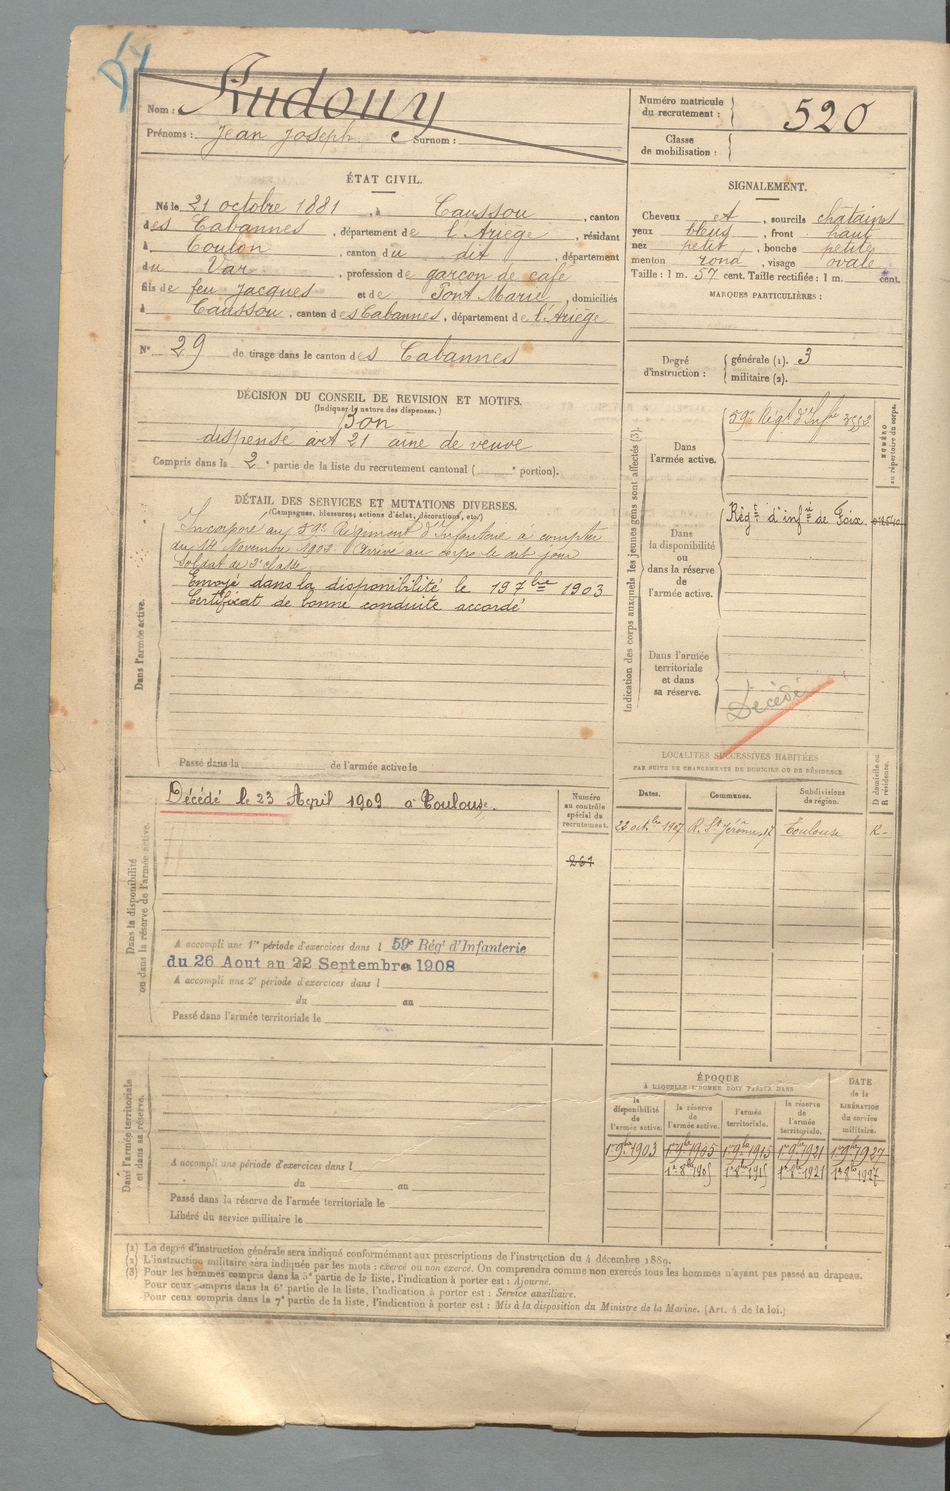 Nom : Rudouy
Prénoms : Jean Joseph Surnom :
Numéro matricule du recrutement : 520
Classe de mobilisation :
ÉTAT CIVIL.
Né le 21 octobre 1881, à Caussou, canton
des Cabannes, département de l'Ariège, résidant
à Toulon, canton du dit, département
du Var, profession de garçon de café
fils de feu Jacques et de Pont Marie, domiciliés
à Caussou, canton des Cabannes, département de l'Ariège
N° 29 de tirage dans le canton des Cabannes
SIGNALEMENT.
Cheveux et, sourcils châtains
yeux bleus, front haut
nez petit, bouche petite
menton rond, visage ovale
Taille : 1 m. 57 cent. Taille rectifiée : 1 m. cent.
MARQUES PARTICULIÈRES :
Degré d'instruction : générale (1). 3
militaire (2).
DÉCISION DU CONSEIL DE REVISION ET MOTIFS.
(Indiquer la nature des dispenses.)
Bon
dispensé art 21 aîné de veuve
Compris dans la 2e partie de la liste du recrutement cantonal ( e portion).
DÉTAIL DES SERVICES ET MUTATIONS DIVERSES.
(Campagnes, blessures, actions d'éclat, décorations, etc.)
Dans l'armée active.
Incorporé au 59e Régiment d'Infanterie à compter
du 14 Novembre 1902. Arrivé au corps le dit jour
Soldat de 2e classe
Envoyé dans la disponibilité le 19 7bre 1903
Certificat de bonne conduite accordé
Passé dans la de l'armée active le
Indication des corps auxquels les jeunes gens sont affectés (3).
NUMÉRO au répertoire du corps.
Dans l'armée active.
59e Régt d'Infie
Dans la disponibilité ou dans la réserve de l'armée active.
Régt d'infie de Foix.
Dans l'armée territoriale et dans sa réserve.
Décédé
Dans la disponibilité ou dans la réserve de l'armée active.
Décédé le 23 April 1909 à Toulouse.
Numéro au contrôle spécial du recrutement.
261
A accompli une 1re période d'exercices dans l 59e Régt d'Infanterie
du 26 Aout au 22 Septembre 1908
A accompli une 2e période d'exercices dans l
du au
Passé dans l'armée territoriale le
LOCALITÉS SUCCESSIVES HABITÉES
PAR SUITE DE CHANGEMENTS DE DOMICILE OU DE RÉSIDENCE.
Dates. Communes. Subdivisions de région. D domicile ou R résidence.
22 octbre 1907 R. St Jérôme, 17 Toulouse R-
Dans l'armée territoriale et dans sa réserve.
A accompli une période d'exercices dans l
du au
Passé dans la réserve de l'armée territoriale le
Libéré du service militaire le
ÉPOQUE
À LAQUELLE L'HOMME DOIT PASSER DANS
la disponibilité de l'armée active. la réserve de l'armée active. l'armée territoriale. la réserve de l'armée territoriale. DATE de la LIBÉRATION du service militaire.
1er 9bre 1903 1er 9bre 1905 1er 9bre 1915 1er 9bre 1921 1er 9bre 1927
1er 8bre 1905 1er 8bre 1915 1er 8bre 1921 1er 8bre 1927
(1) Le degré d'instruction générale sera indiqué conformément aux prescriptions de l'instruction du 4 décembre 1889.
(2) L'instruction militaire sera indiquée par les mots : exercé ou non exercé. On comprendra comme non exercés tous les hommes n'ayant pas passé au drapeau.
(3) Pour les hommes compris dans la 5e partie de la liste, l'indication à porter est : Ajourné.
Pour ceux compris dans la 6e partie de la liste, l'indication à porter est : Service auxiliaire.
Pour ceux compris dans la 7e partie de la liste, l'indication à porter est : Mis à la disposition du Ministre de la Marine. (Art. 4 de la loi.)